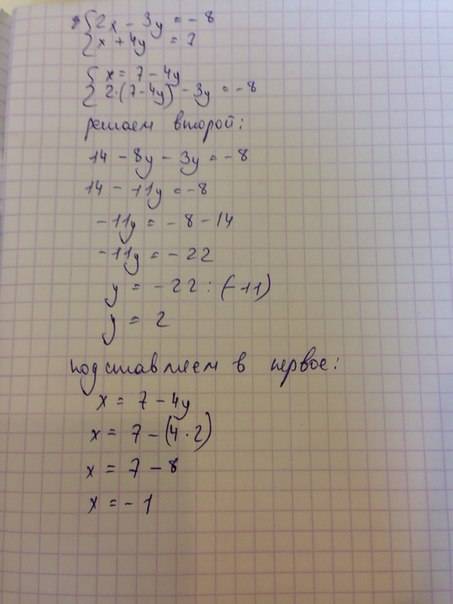 2x - 3y = - 8
x + 4y = 7
x = 7 - 4y
2·(7-4y) - 3y = -8
решаем второй:
14 - 8y - 3y = -8
14 - 11y = -8
-11y = -8-14
-11y = -22
y = -22 : (-11)
y = 2
подставляем в первое:
x = 7 - 4y
x = 7 - (4·2)
x = 7 - 8
x = - 1